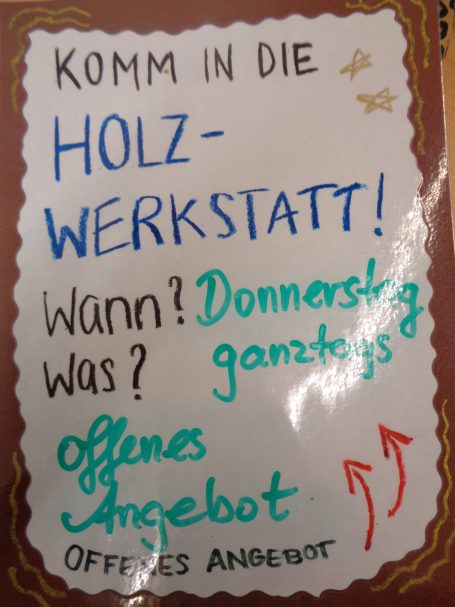 KOMM IN DIE
HOLZ-
WERKSTATT!
Wann? Donnerstag
Was? ganztags
offenes
Angebot
OFFENES ANGEBOT